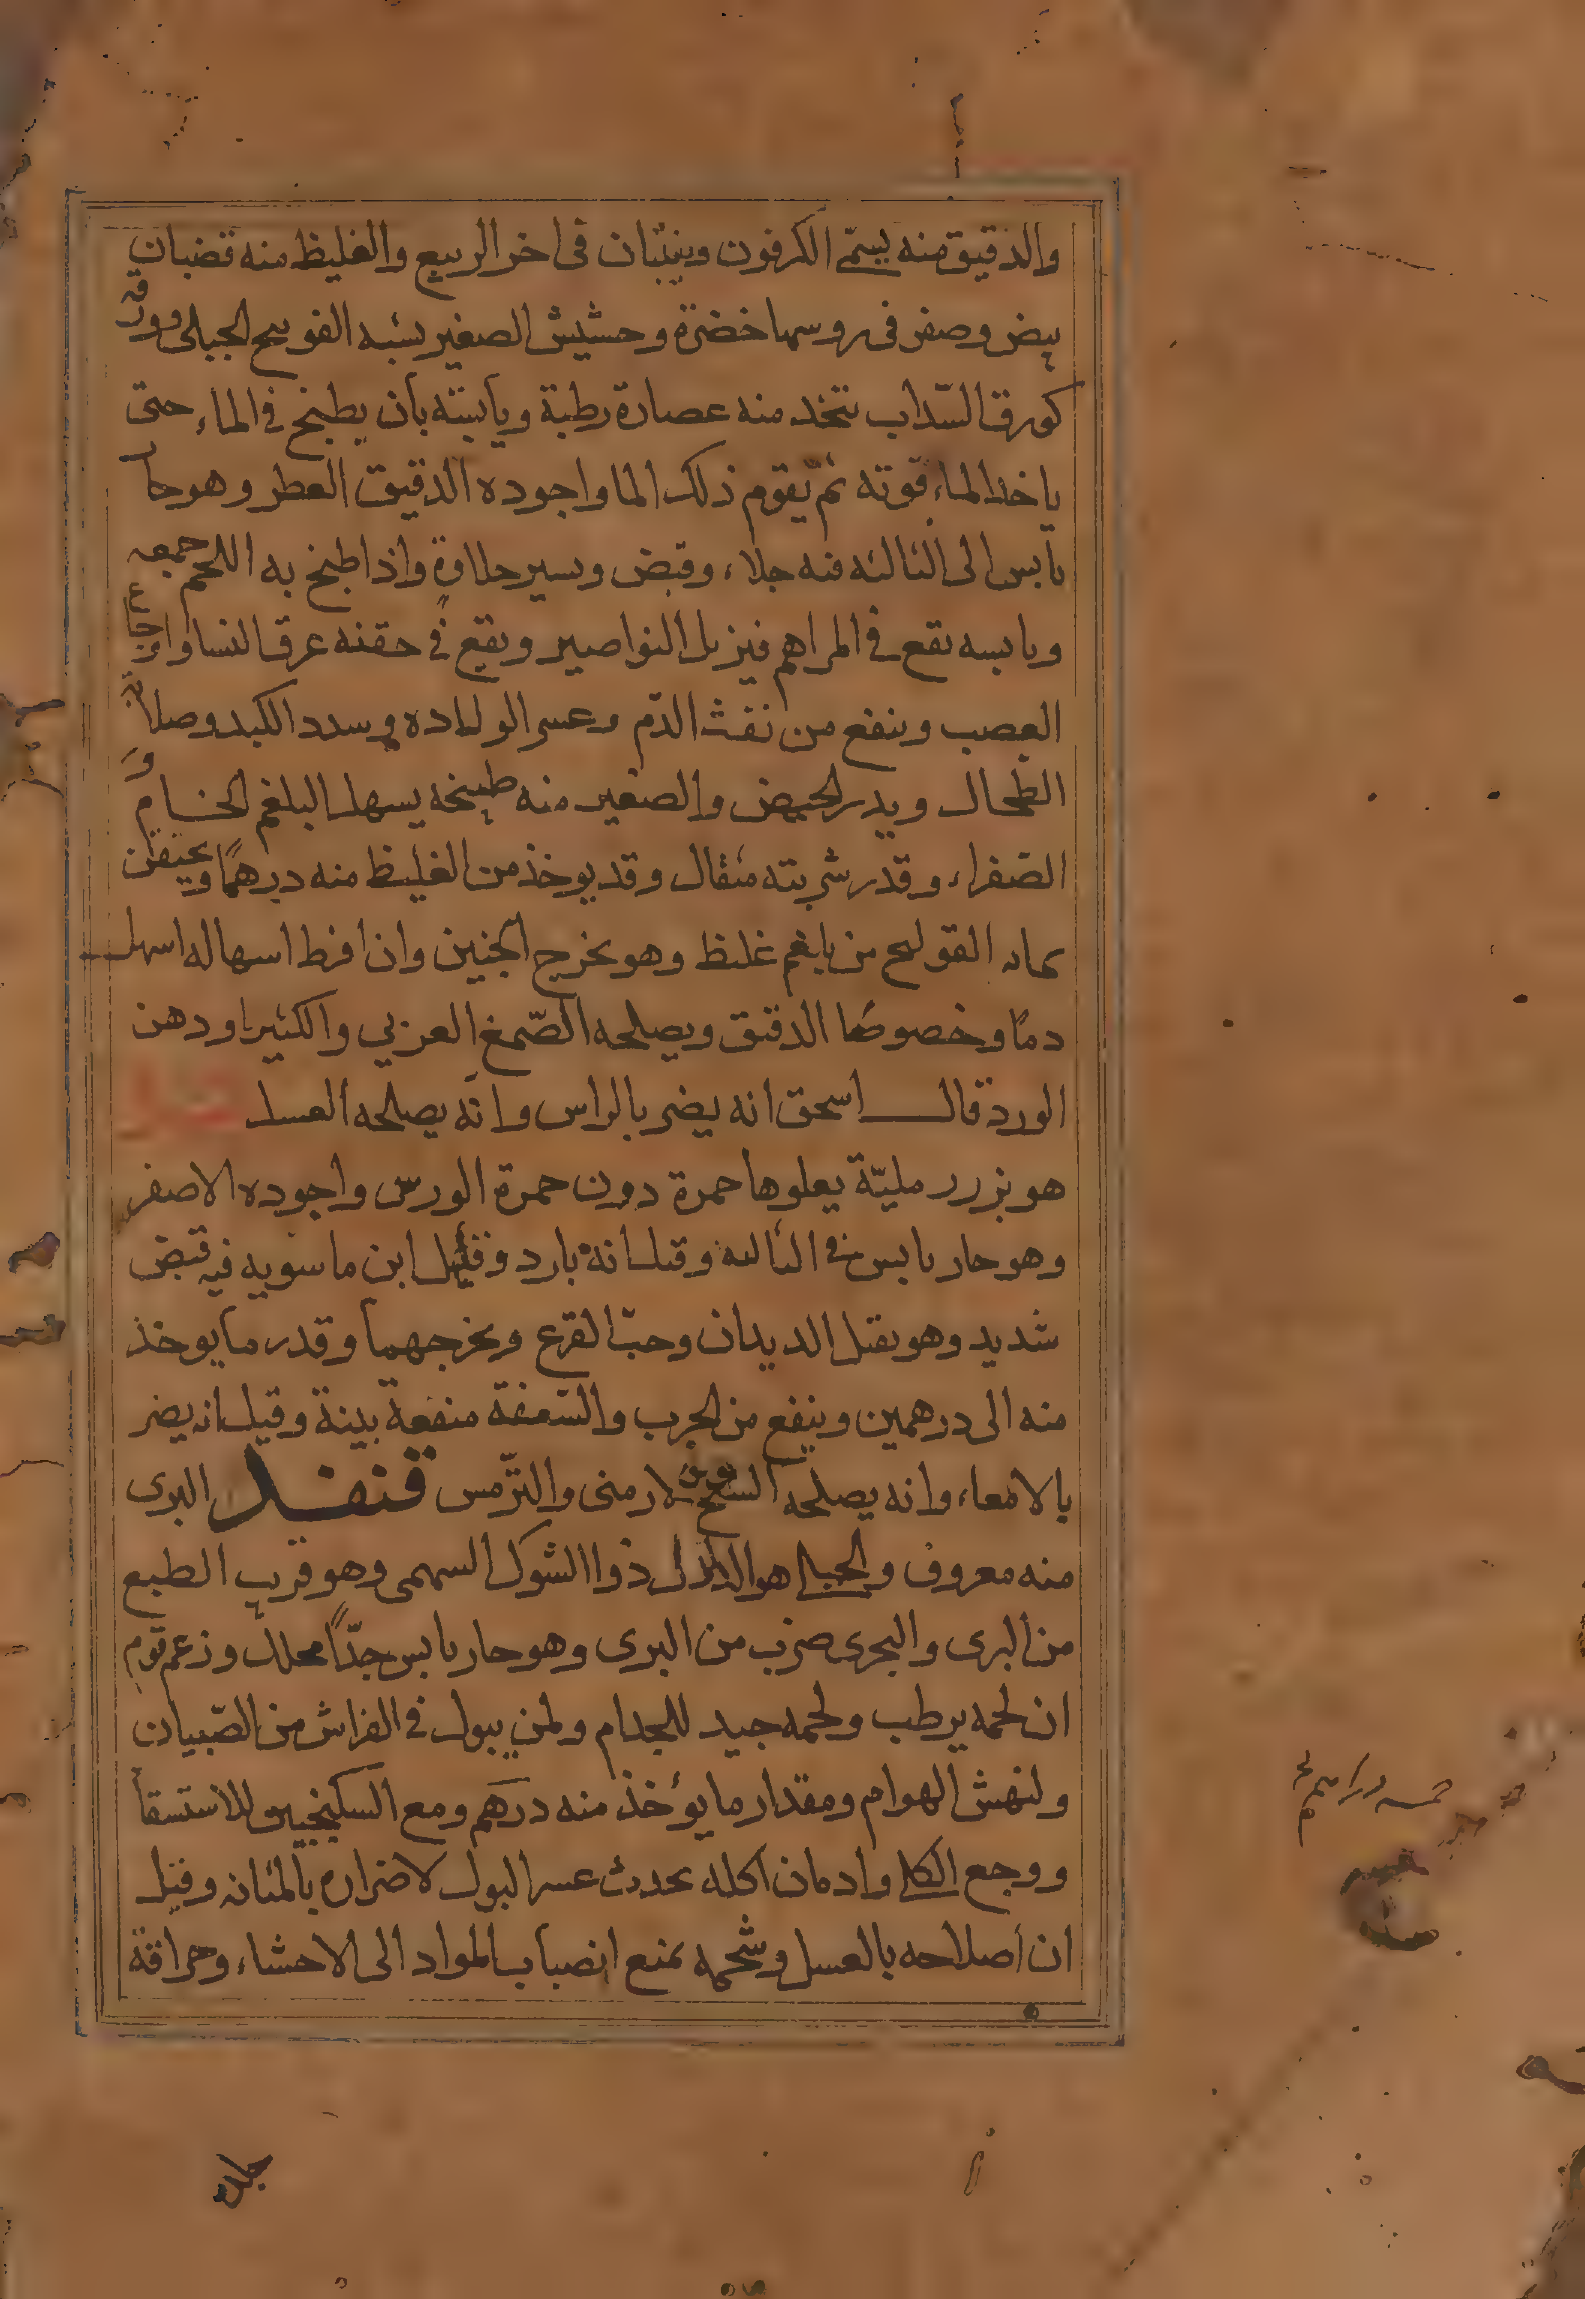 والدقيق منه يسمّى الكرفون وينبتان فى اخر الربيع والغليظ منه قضبان
بيض وصفر فى روسها خضرة وحشيش الصغير يشبه الفوتنج الجبلى وورقه
كورق السّداب تتخد منه عصارة رطبة ويابسته بان يطبخ فى الماء حتى
ياخد الماء قوته ثم يقوم ذلك الما واجوده الدقيق العطر وهو حار
يابس الى الثالثه فيه جلاء وقبض ويسير حلاوة واذا طبخ به اللحم جمعه
ويابسه يقع فى المراهم فيزيل النواصير ويقع فى حقنه عرق النسا واوجاع
العصب وينفع من نفث الدّم وعسر الولاده وسدد الكبد وصلابة
الطحال ويدر الحيض والصغير منه طبيخه يسهل البلغم الخام و
الصّفراء وقدر شربته مثقال وقد يوخذ من الغليظ منه درهمًا ويحتقن
بمائه القولنج من بلغم غليظ وهو يخرج الجنين وان افرط اسهاله اسهل
دمًا وخصوصًا الدقيق ويصلحه الصّمغ العربي والكثيرا ودهن
الورد قال اسحق انه يضر بالراس وانه يصلحه العسل
هو بزر رمليّة يعلوها حمرة دون حمرة الورس واجوده الاصفر
وهو حار يابس فى الثالثه وقيل انه بارد وقيل ابن ماسويه فيه قبض
شديد وهو يقتل الديدان وحبّ القرع ويخرجهما وقدر ما يوخذ
منه الى درهمين وينفع من الجرب والسّعفة منفعة بينة وقيل انه يضر
بالامعاء وانه يصلحه الارمنى والترّمس قنفد البرى
منه معروف والجبلى هو الدلدل ذوا الشوك السهمى وهو قريب الطبع
من البرى والبحرى ضرب من البرى وهو حار يابس جدّاً محلل وزعم قوم
ان لحمه يرطب ولحمه جيد للجدام ولمن يبول فى الفراش من الصّبيان
ولنهش الهوام ومقدار ما يؤخذ منه درهم ومع السكنجبين للاستسقا
ووجع الكلى وادمان اكله يحدث عسر البول لاضراره بالمثانه وقيل
ان اصلاحه بالعسل وشحمه يمنع انصباب المواد الى الاحشاء وحراقة